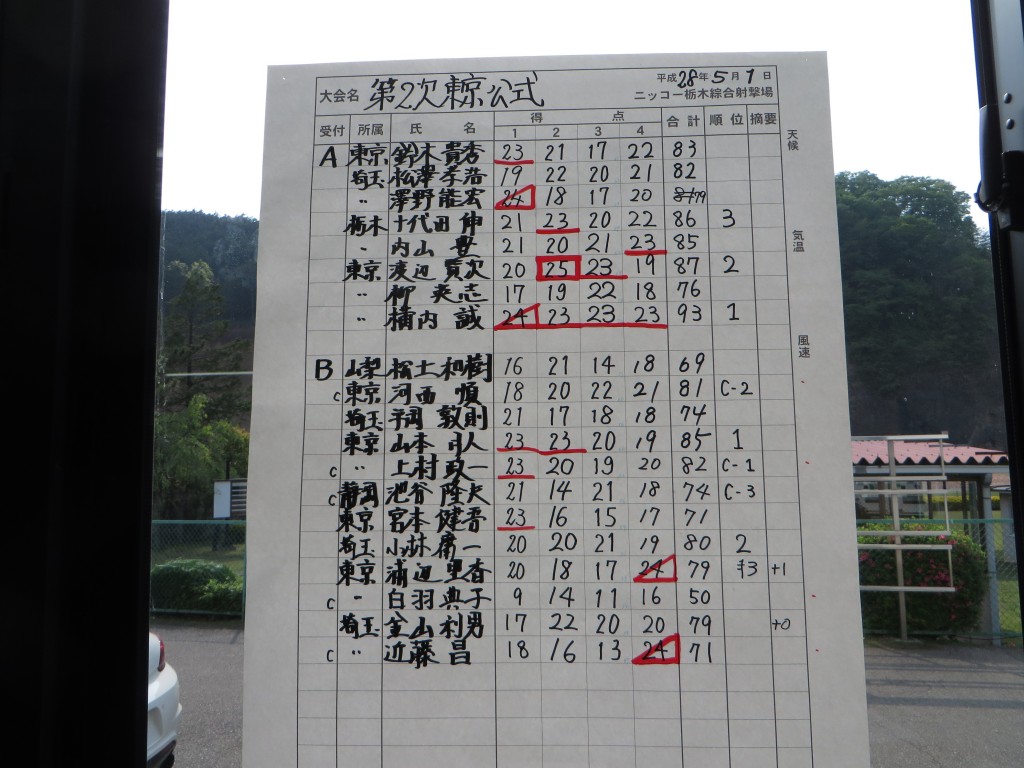 大会名 第2次東京公式 平成28年5月1日
ニッコー栃木綜合射撃場
受付 所属 氏名 得点 合計 順位 摘要
1 2 3 4
天候
気温
風速
A 東京 鈴木貴杏 23 21 17 22 83
埼玉 松澤孝浩 19 22 20 21 82
〃 澤野能宏 24 18 17 20 79
栃木 十代田伸 21 23 20 22 86 3
〃 内山 21 20 21 23 85
東京 渡辺賢次 20 25 23 19 87 2
〃 柳英志 17 19 22 18 76
〃 横内誠 24 23 23 23 93 1
B 山梨 松土和樹 16 21 14 18 69
C 東京 河西順 18 20 22 21 81 C-2
埼玉 平岡敦則 21 17 18 18 74
東京 山本 人 23 23 20 19 85 1
C 〃 上村政一 23 20 19 20 82 C-1
C 静岡 池谷隆夫 21 14 21 18 74 C-3
東京 宮本健吾 23 16 15 17 71
埼玉 小林庸一 20 20 21 19 80 2
東京 浦辺里香 20 18 17 24 79 3 +1
C 〃 白羽典子 9 14 11 16 50
埼玉 金山利男 17 22 20 20 79 +0
C 〃 近藤昌 18 16 13 24 71